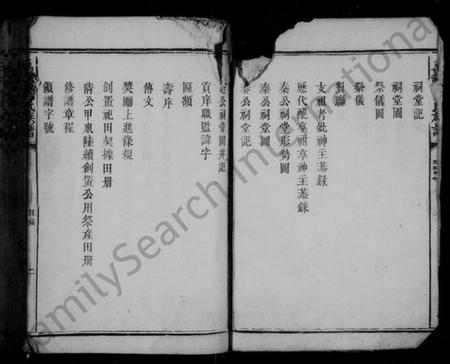 祠堂記
祠堂圖
祭儀圖
祭儀
對聯
支祖考妣神主基錄
歷代配享祔享神主基錄
秦公祠堂形勢圖
秦公祠堂圖
秦公祠堂記
公祠堂圖并記
貢庠職監諱字
匾額
壽序
傳文
獎勵上進條規
創置祀田契據田冊
清公甲泉陸續創置公用祭產田冊
修譜章程
領譜字號
FamilySearch International